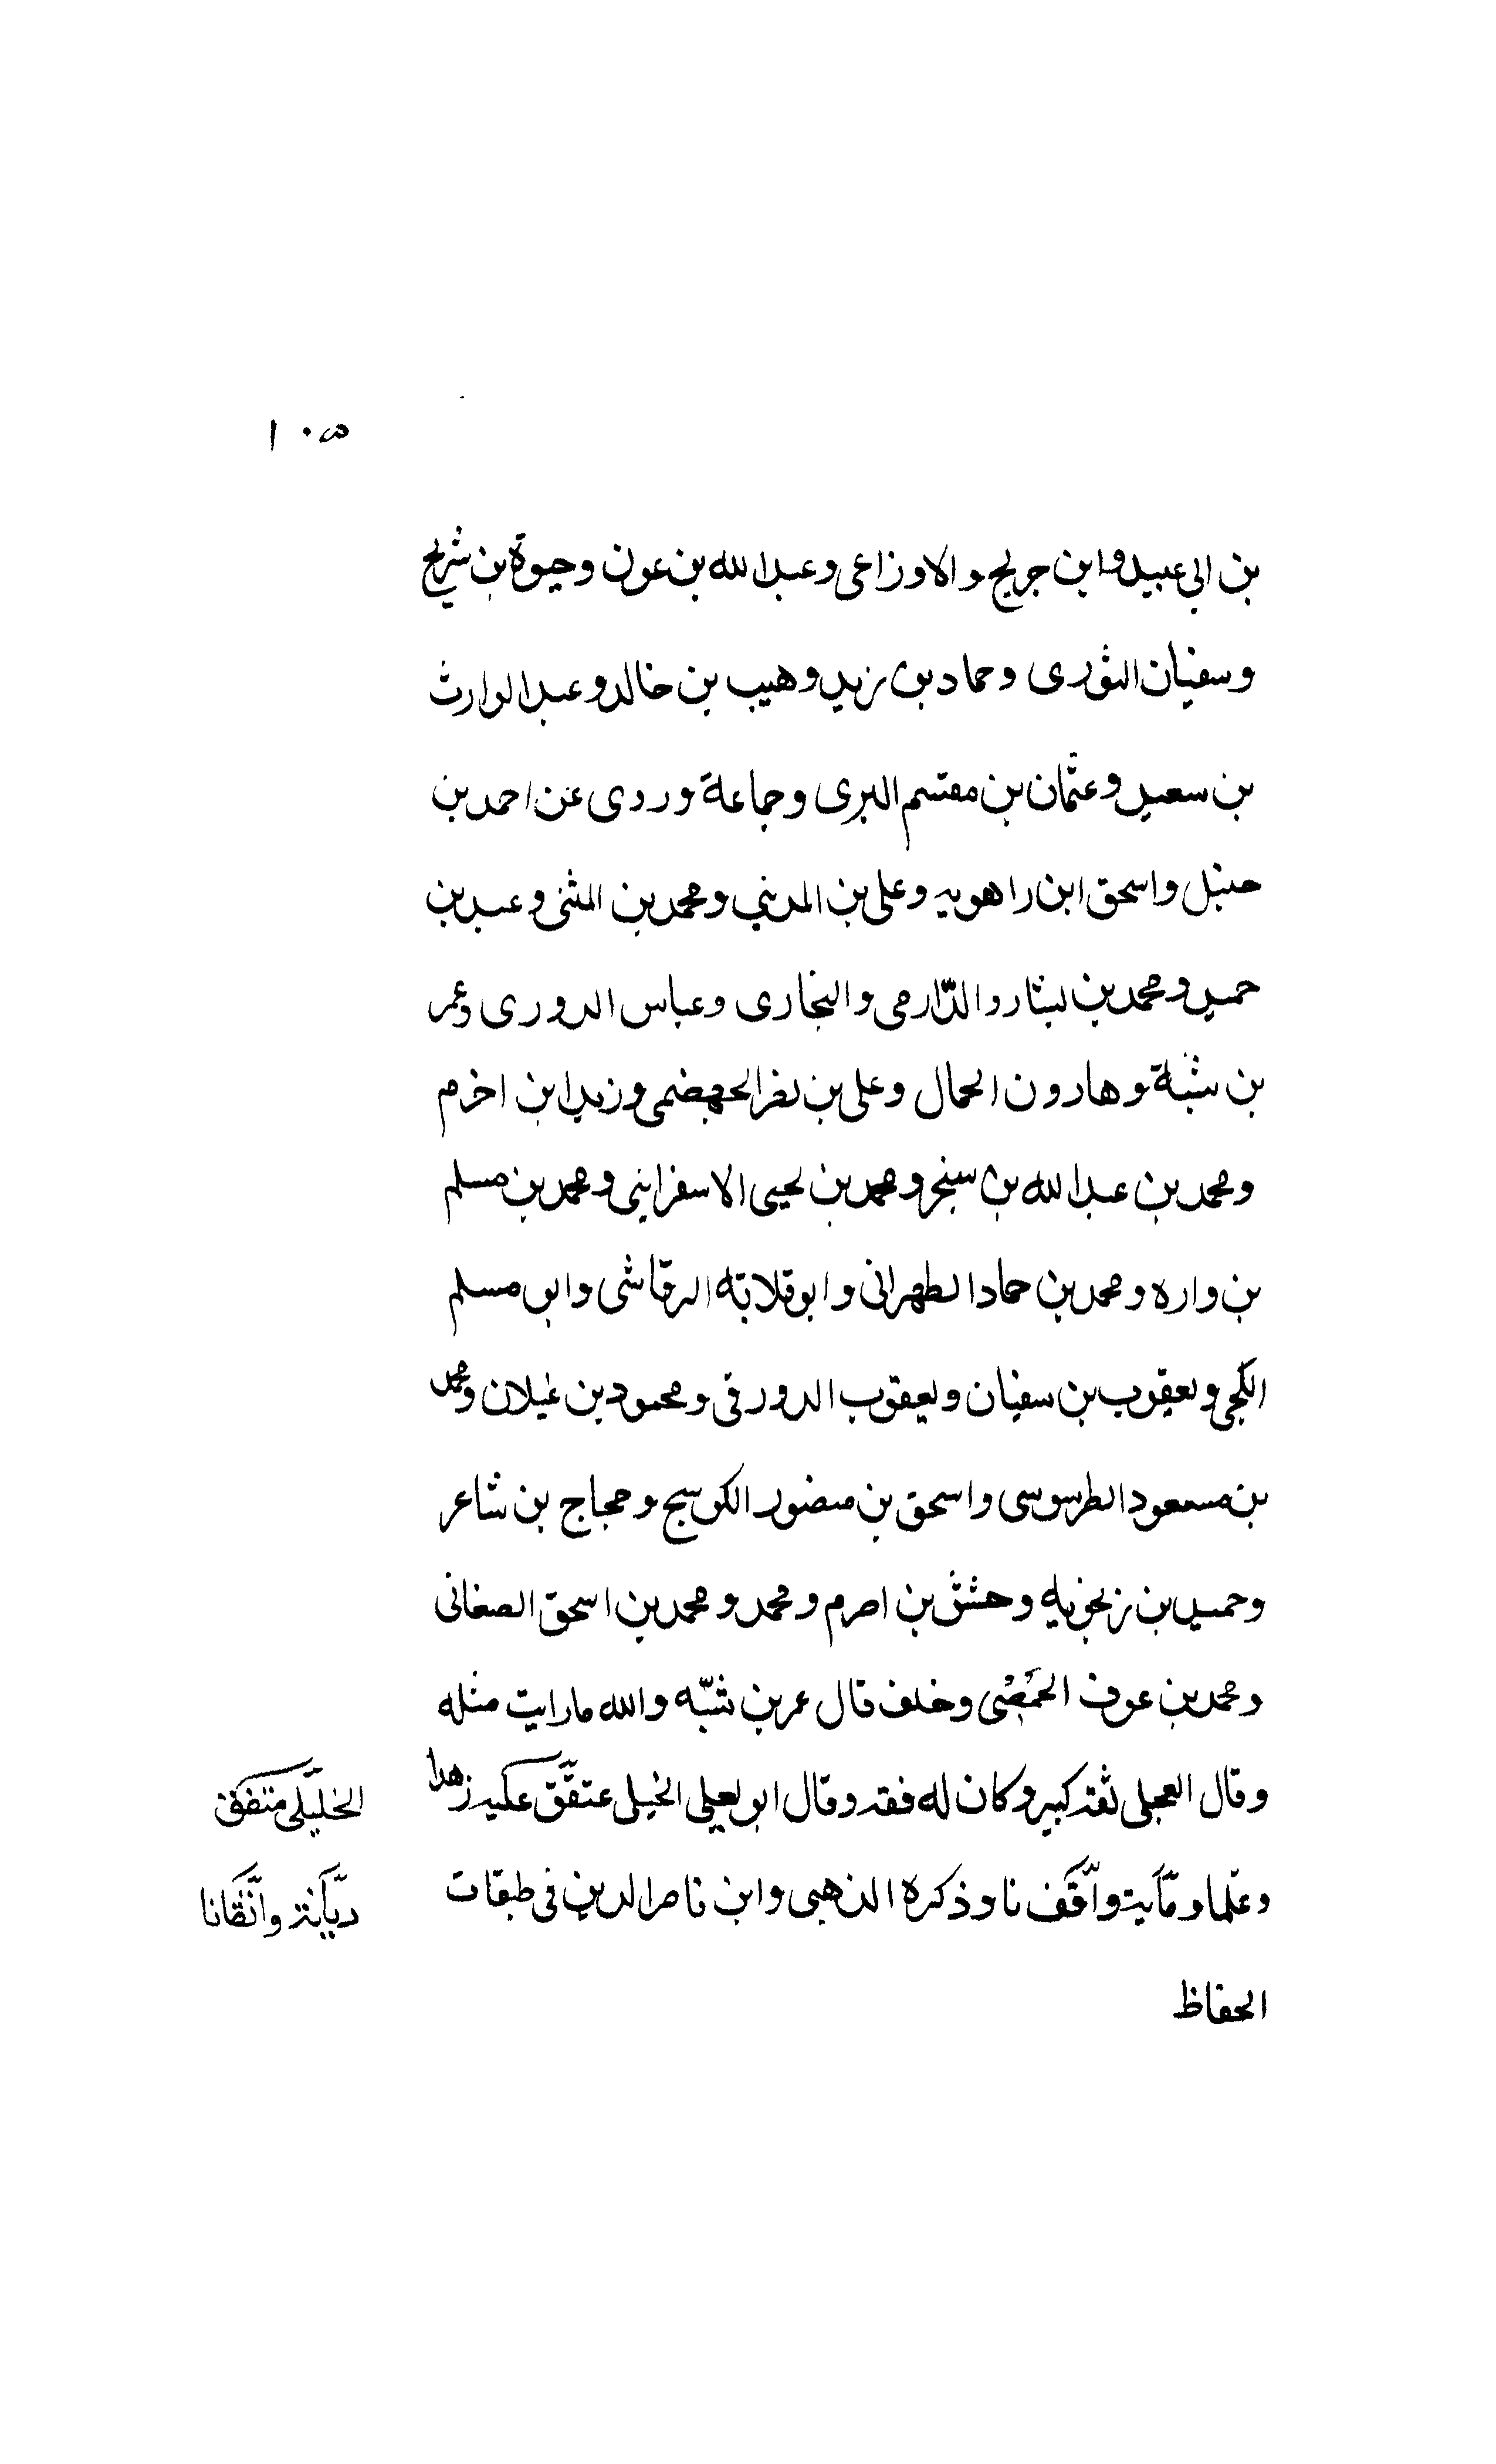 ١٠٥
بن ابى عبيد وابن جريج والاوزاعى وعبد الله بن عون وحيوة بن شريح
وسفيان الثورى وحماد بن زيد وهيب بن خالد وعبد الوارث
بن سعيد وعثمان بن مقتسم البرى وجماعة وروى عن احمد بن
حنبل واسحق ابن راهويه وعلى بن المديني ومحمد بن المثنى وعبد بن
حميد ومحمد بن بشار والدّارمى والبخارى وعباس الدورى وعمر
بن شبّة وهارون الحمال وعلى بن نصر الجهضمى وزيد ابن اخزم
ومحمد بن عبد الله بن سنجر ومحمد بن يحيى الاسفراينى ومحمد بن مسلم
بن واره ومحمد بن حماد الطهرانى وابو قلابة الرقاشى وابو مسلم
الكجى ويعقوب بن سفيان ويعقوب الدورقى ومحمود بن غيلان ومحمد
بن مسعود الطرسوسى واسحق بن منصور الكوسج وحجاج بن شاعر
وحميد بن زنجويه وحشش بن اصرم ومحمد ومحمد بن اسحق الصغانى
ومحمد بن عوف الحمصى وخلف قال عمر بن شبّه والله ما رايت مثله
وقال العجلى ثقة كبير وكان له فقه وقال ابو يعلى الخيلى عتقق عليه زهدا
وعلما و نا وذكره الذهبى وابن ناصر الدين فى طبقات
الحفاظ
الخليلى متفق
ديانة واتقانا